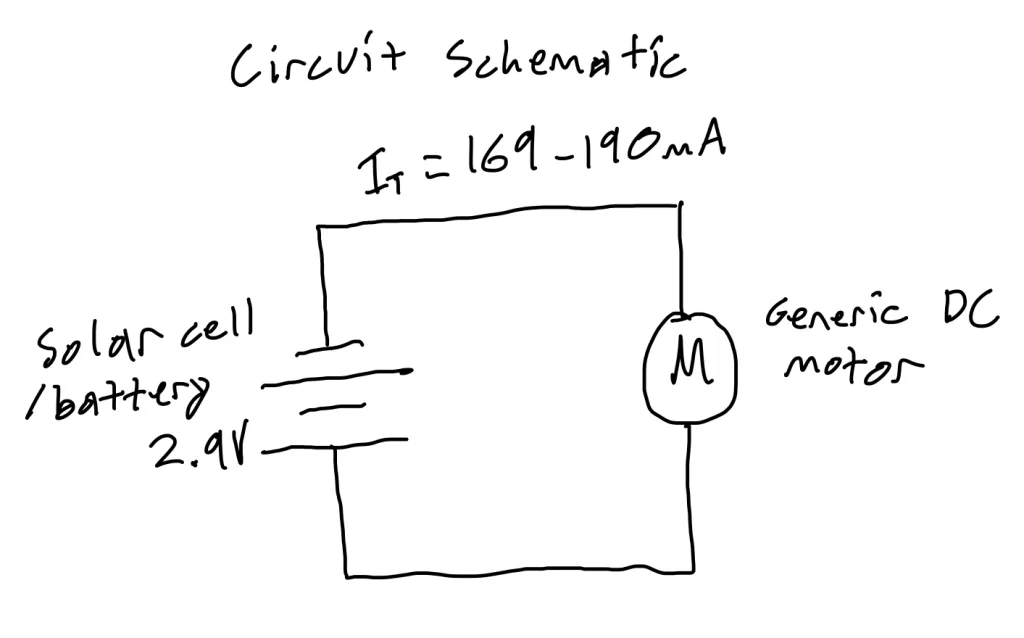 Circuit Schematic
I_T = 169-190mA
Solar cell
/battery
2.9V
M
Generic DC
motor